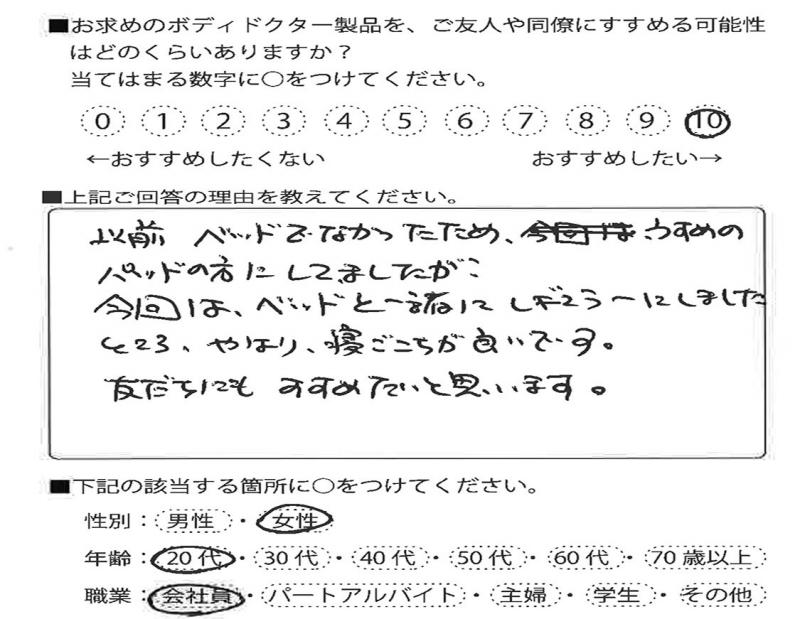 ■お求めのボディドクター製品を、ご友人や同僚にすすめる可能性
はどのくらいありますか？
当てはまる数字に○をつけてください。
0 1 2 3 4 5 6 7 8 9 10
←おすすめしたくない おすすめしたい→
■上記ご回答の理由を教えてください。
以前 ベッドでなかったため、今回は うすめの
パッドの方にしてましたが、
今回は、ベッドと一緒に レギュラーにしました
ところ、やはり、寝ごこちが良いです。
友だちにも すすめたいと思います。
■下記の該当する箇所に○をつけてください。
性別：男性・女性
年齢：20代・30代・40代・50代・60代・70歳以上
職業：会社員・パートアルバイト・主婦・学生・その他